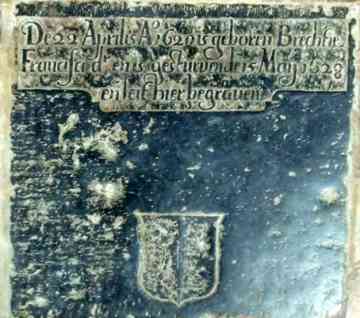 De 22 Aprilis Aº 1620 is geboren Brechtie
Francise d' en is gesturven de 15 May 1628
en leit hier begraven